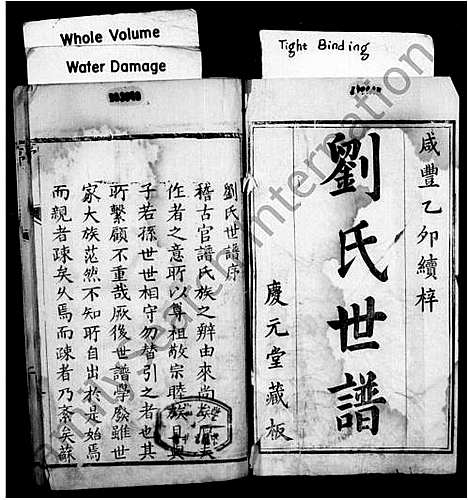 Whole Volume
Water Damage
Tight Binding
咸豐乙卯續梓
劉氏世譜
慶元堂藏板
劉氏世譜序
稽古官譜氏族之辨由來尚矣
作者之意所以尊祖敬宗睦族
子若孫世世相守勿替引之者也其
所繫顧不重哉厥後世譜學廢雖世
家大族茫然不知所自出於是始焉
而親者疎矣久焉而疎者乃紊矣蘇